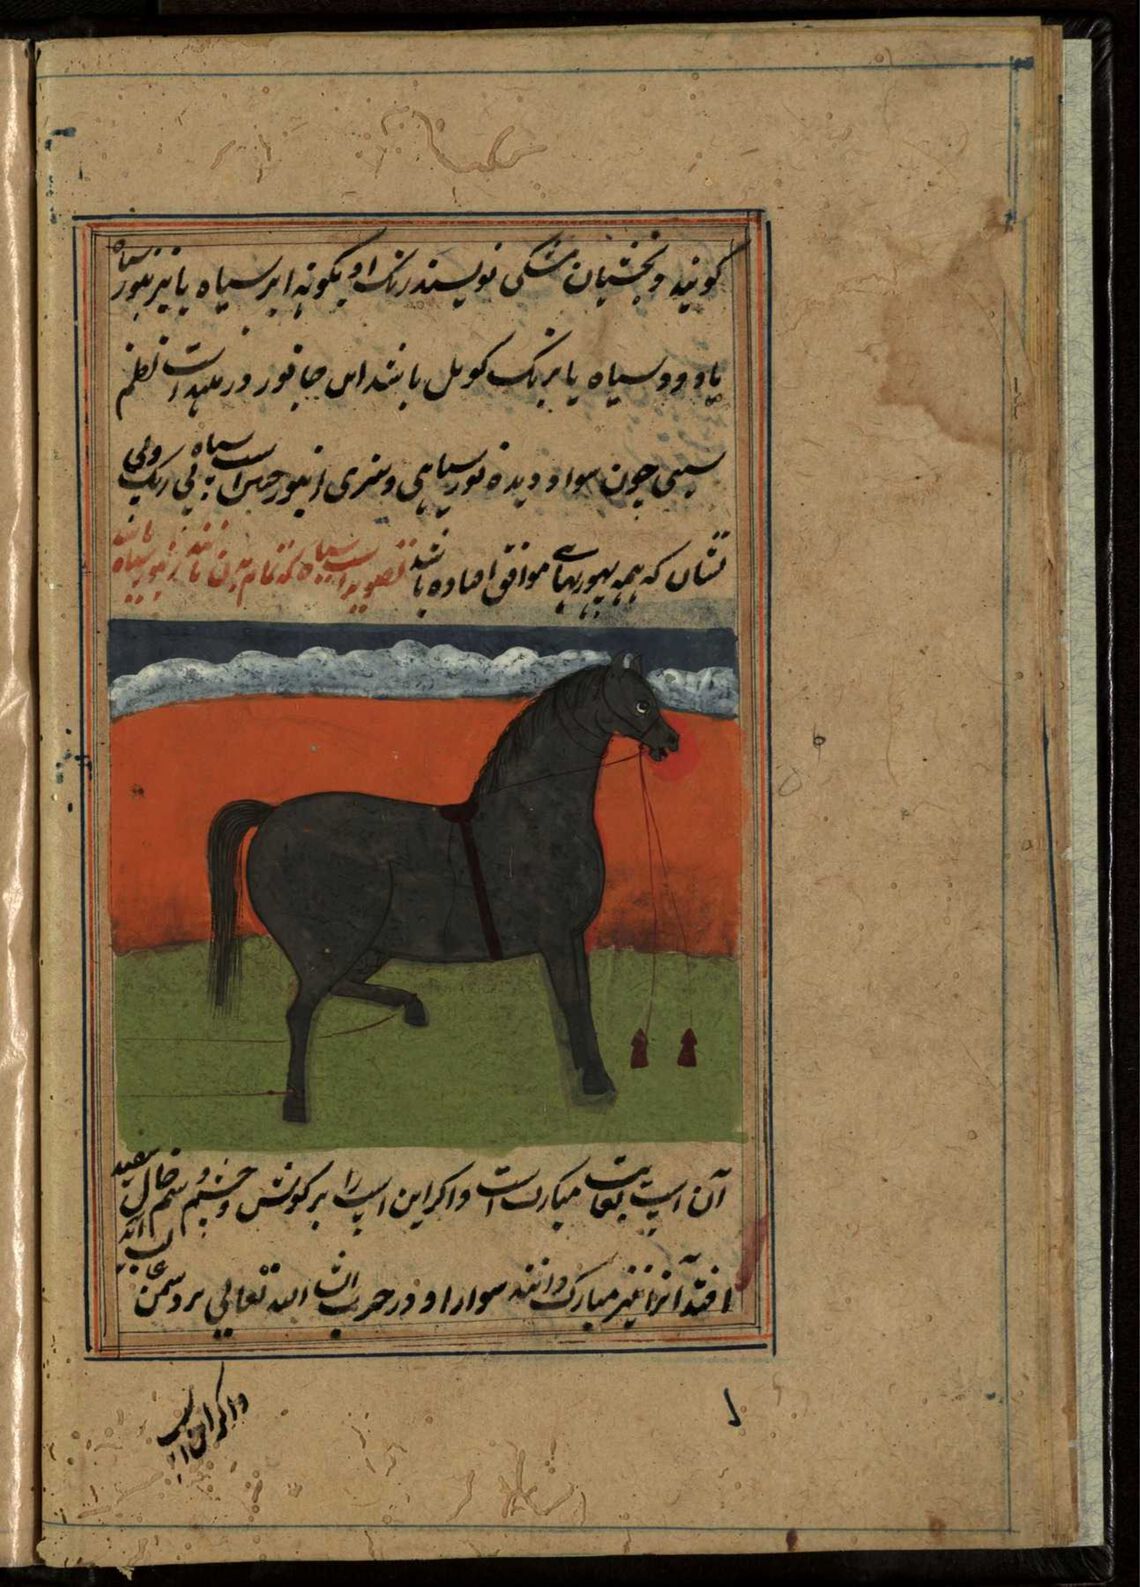 کویند و بخشیان مشکی نویسند رنک او یکونه ابر سیاه یا نیز بلور سیاه
یا دود سیاه یا برنک کویل باشد این جانور در هند است نظم
سیهی چون سواد دیده نور سیاهی و سنری از بلور است سیاه بی رنک ولی
نشان که همه بهونریهای موافق افتاده باشد تصویر اسپ سیاه که تمام بدن مانند زنبور سیاه باشد
آن اسپ بغایت مبارک است و اکر این اسپ را بر کوش و چشم و سم خال سفید
افتد آنرا نیز مبارک دانند سوار او در حرب انشا الله تعالی بر دشمن غالب آید
و اکر این اسپ